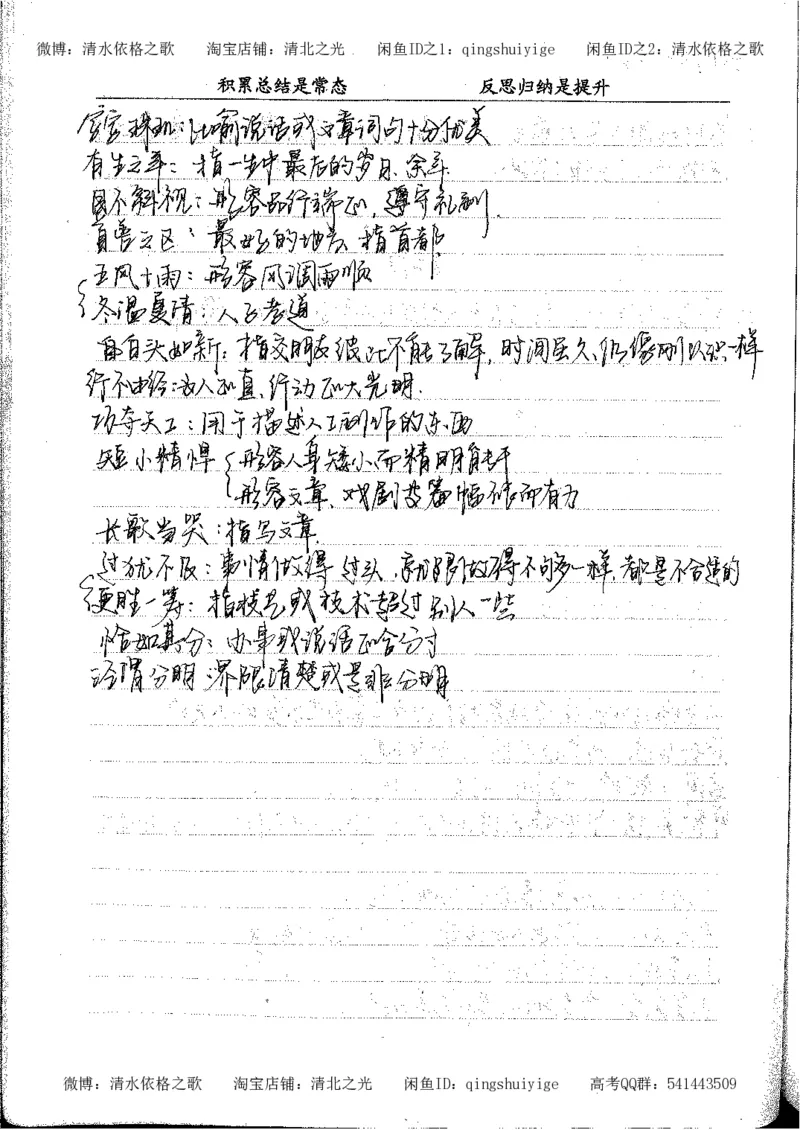 微博：清水依格之歌 淘宝店铺：清北之光 闲鱼ID之1：qingshuiyige 闲鱼ID之2：清水依格之歌
积累总结是常态 反思归纳是提升
字字珠玑：比喻说话或文章词句十分优美
有生之年：指一生中最后的岁月、余年
目不斜视：形容品行端正，遵守礼制.
首善之区：最好的地方，指首都
五风十雨：形容风调雨顺
冬温夏凊：人子孝道
白头如新：指交朋友彼此不能了解，时间虽久、仍像刚认识一样
行不由径：为人正直，行动正大光明.
巧夺天工：用于描述人工制作的东西
短小精悍 形容人身矮小而精明有干
形容文章、戏剧等篇幅不长而有力
长歌当哭：指写文章.
过犹不及：事情做得过头，就跟做得不够一样，都是不合适的
更胜一筹：指技艺或技术超过别人一些
恰如其分：办事或说话正合分寸
泾渭分明：界限清楚或是非分明
微博：清水依格之歌 淘宝店铺：清北之光 闲鱼ID：qingshuiyige 高考QQ群：541443509